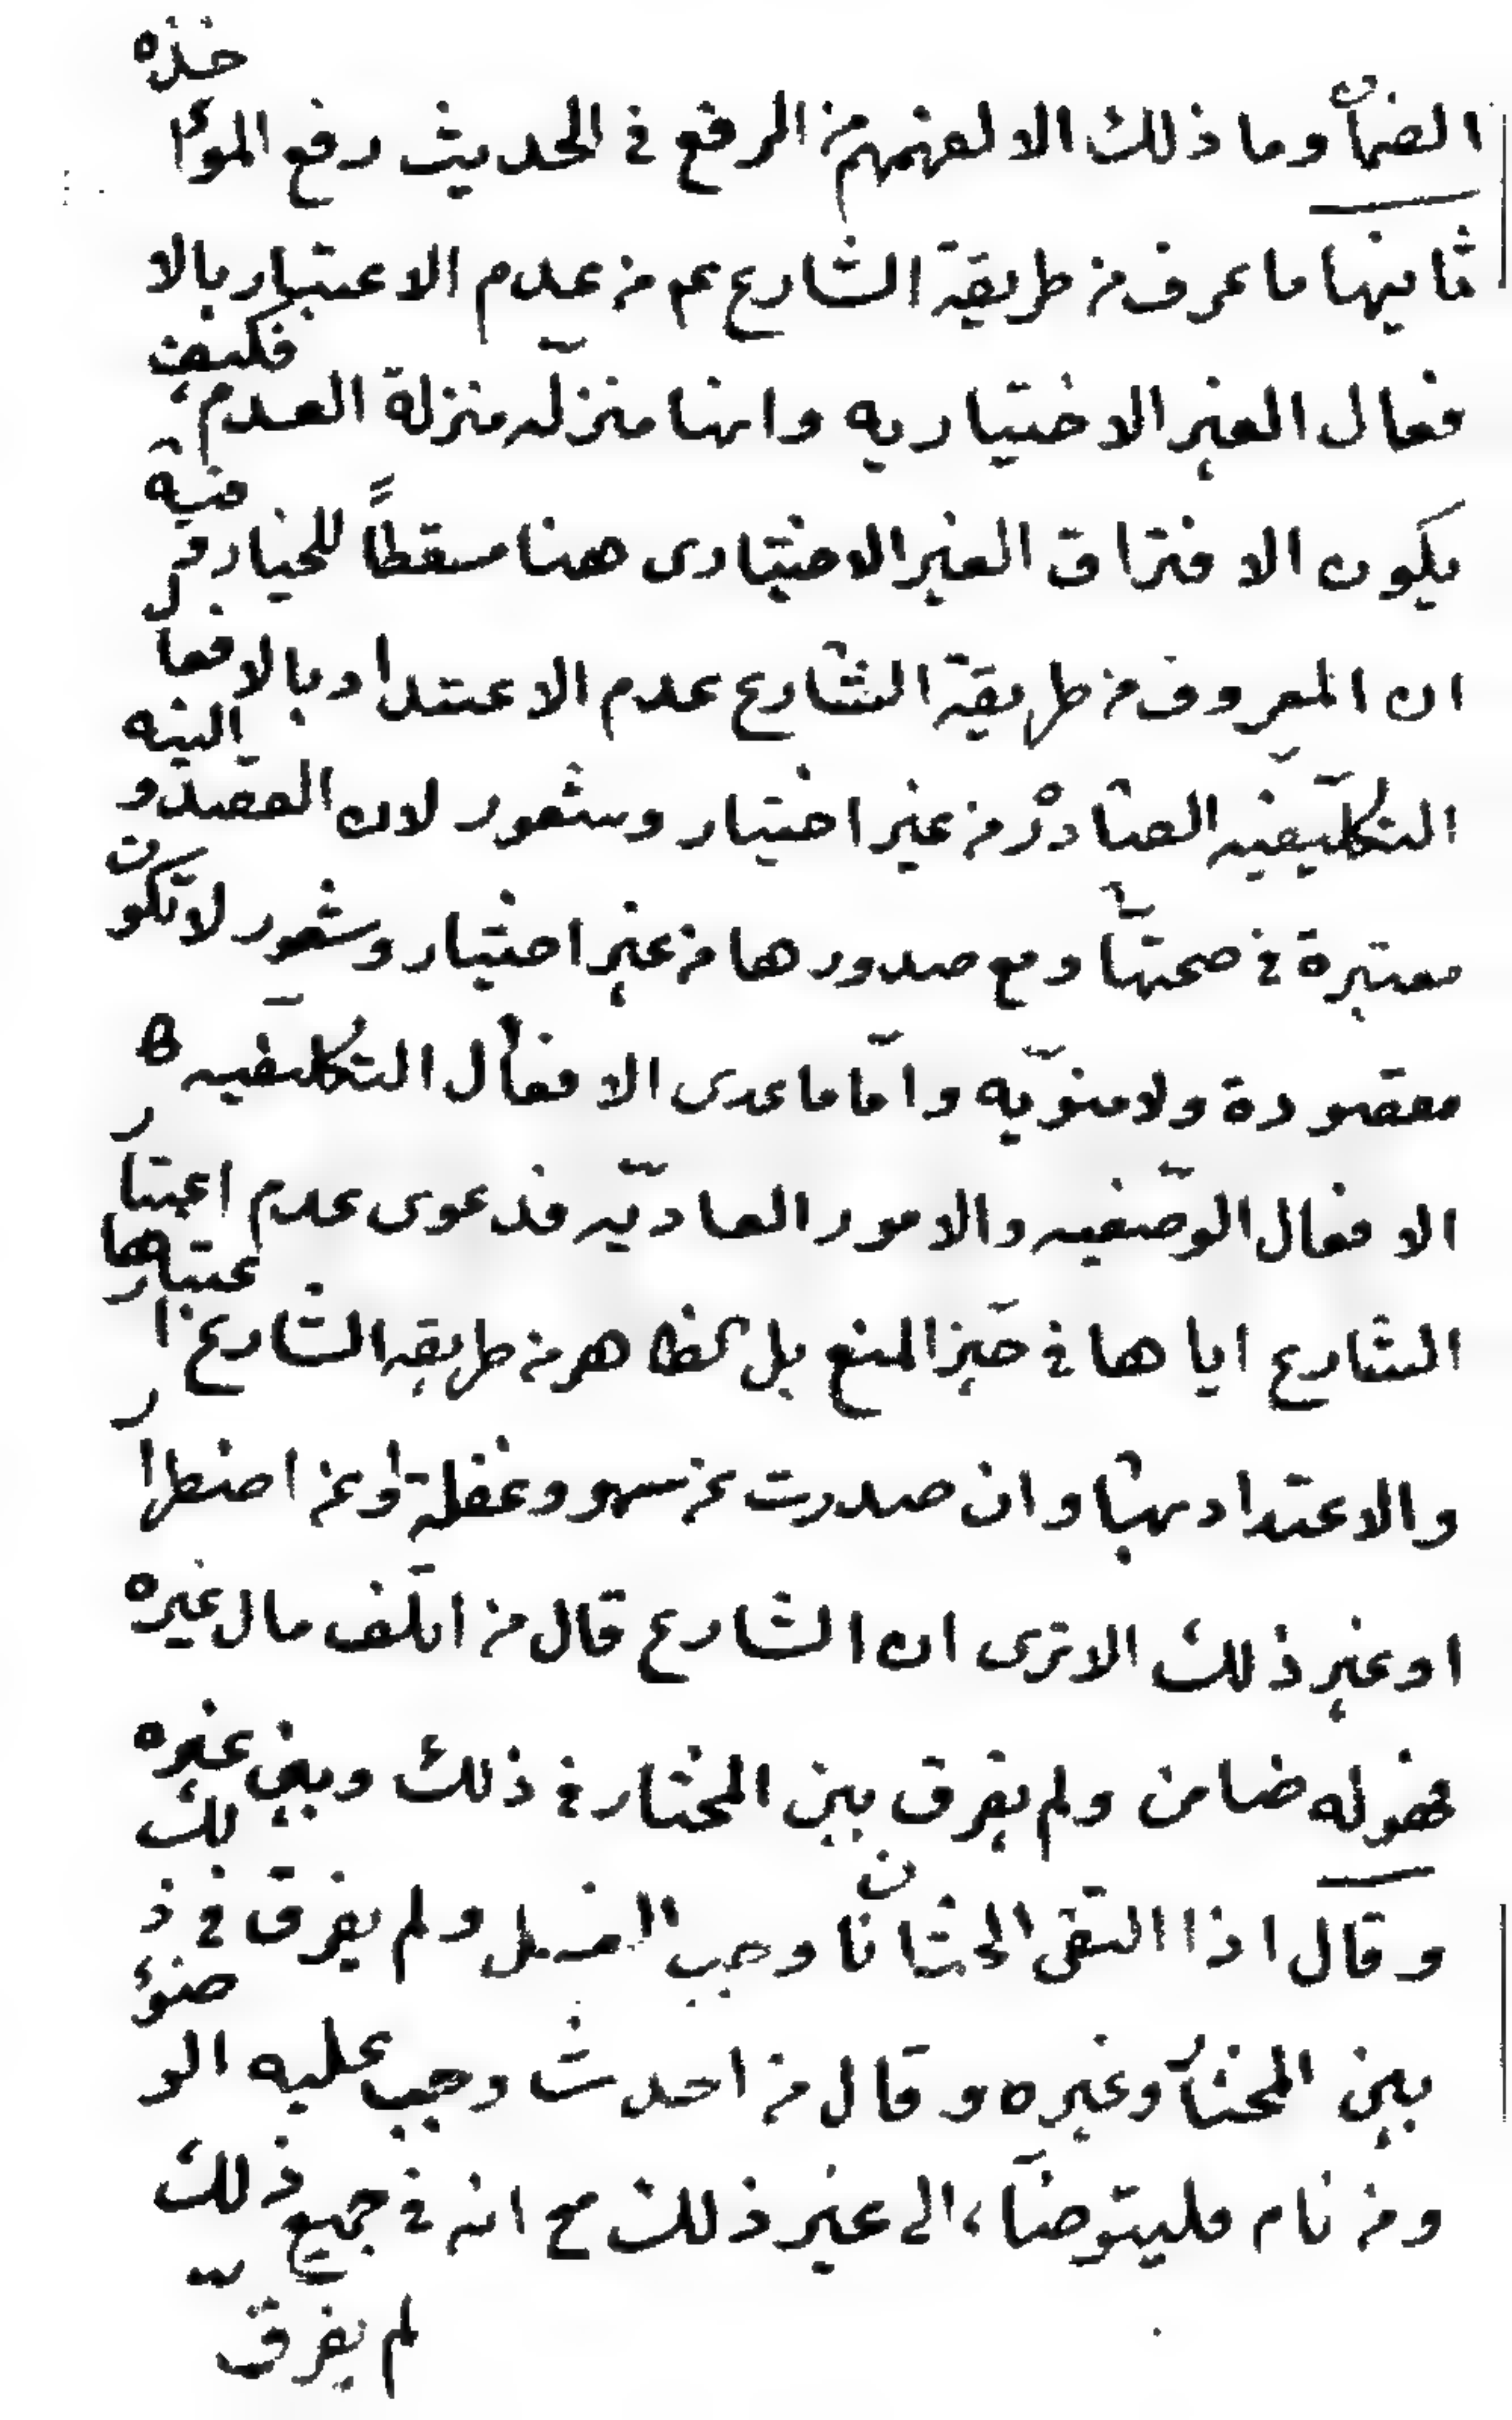 الضمان وما ذلك الا لفهمهم من الرفع في الحديث رفع المؤاخذه
ثانيها ما عرف من طريقة الشارع عم من عدم الاعتبار بالا
فعال الغير الاختياريه وانها منزله منزلة العدم فكيف
يكون الافتراق الغير الاختيارى هنا مسقطاً للخيار وفيه
ان المعروف من طريقة الشارع عدم الاعتداد بالافعال
التكليفيه الصادره من غير اختيار وشعور لان القصد و النيه
معتبرة في صحتها ومع صدورها من غير اختيار وشعور لا تكون
مقصودة ولا منويّه وامّا ما عدى الافعال التكليفيه كا
لافعال الوصفيه والامور العاديّه فدعوى عدم اعتبار
الشارع اياها في حيّز المنع بل الظاهر من طريقه الشارع اعتبارها
والاعتداد بها وان صدرت عن سهو وغفلة او عن اضطرار
او غير ذلك الا ترى ان الشارع قال من اتلف مال غيره
فهو له ضامن ولم يفرق بين المختار في ذلك وبين غيره
وقال اذا التقى الختانان وجب الغسل ولم يفرق في ذلك
بين المختار وغيره وقال من احدث وجب عليه الوضوء
ومن نام فليتوضأ، الى غير ذلك مع انه في جميع ذلك
لم يفرق